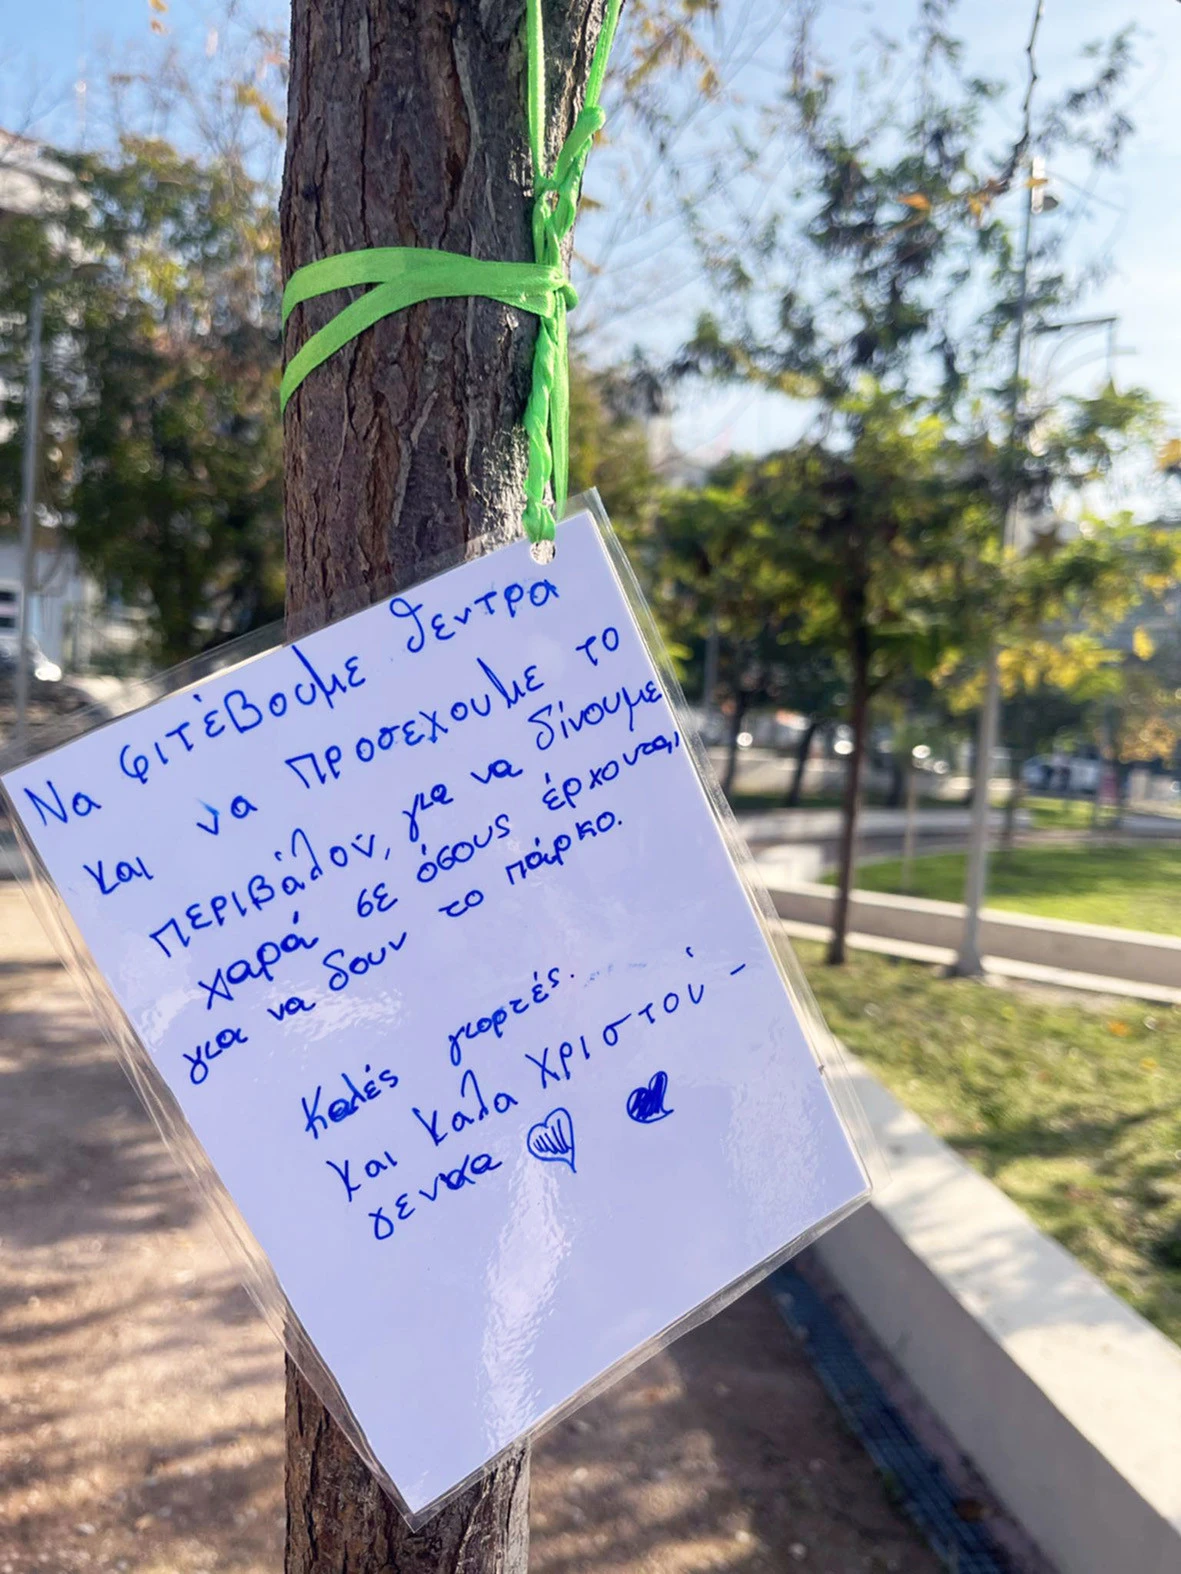 Να φιτέβουμε δεντρα
και να προσεχουμε το
περιβάλον, για να δίνουμε
χαρά σε όσους έρχονται
για να δουν το πάρκο.
Καλές γιορτές.
και καλα Χριστού -
γεννα